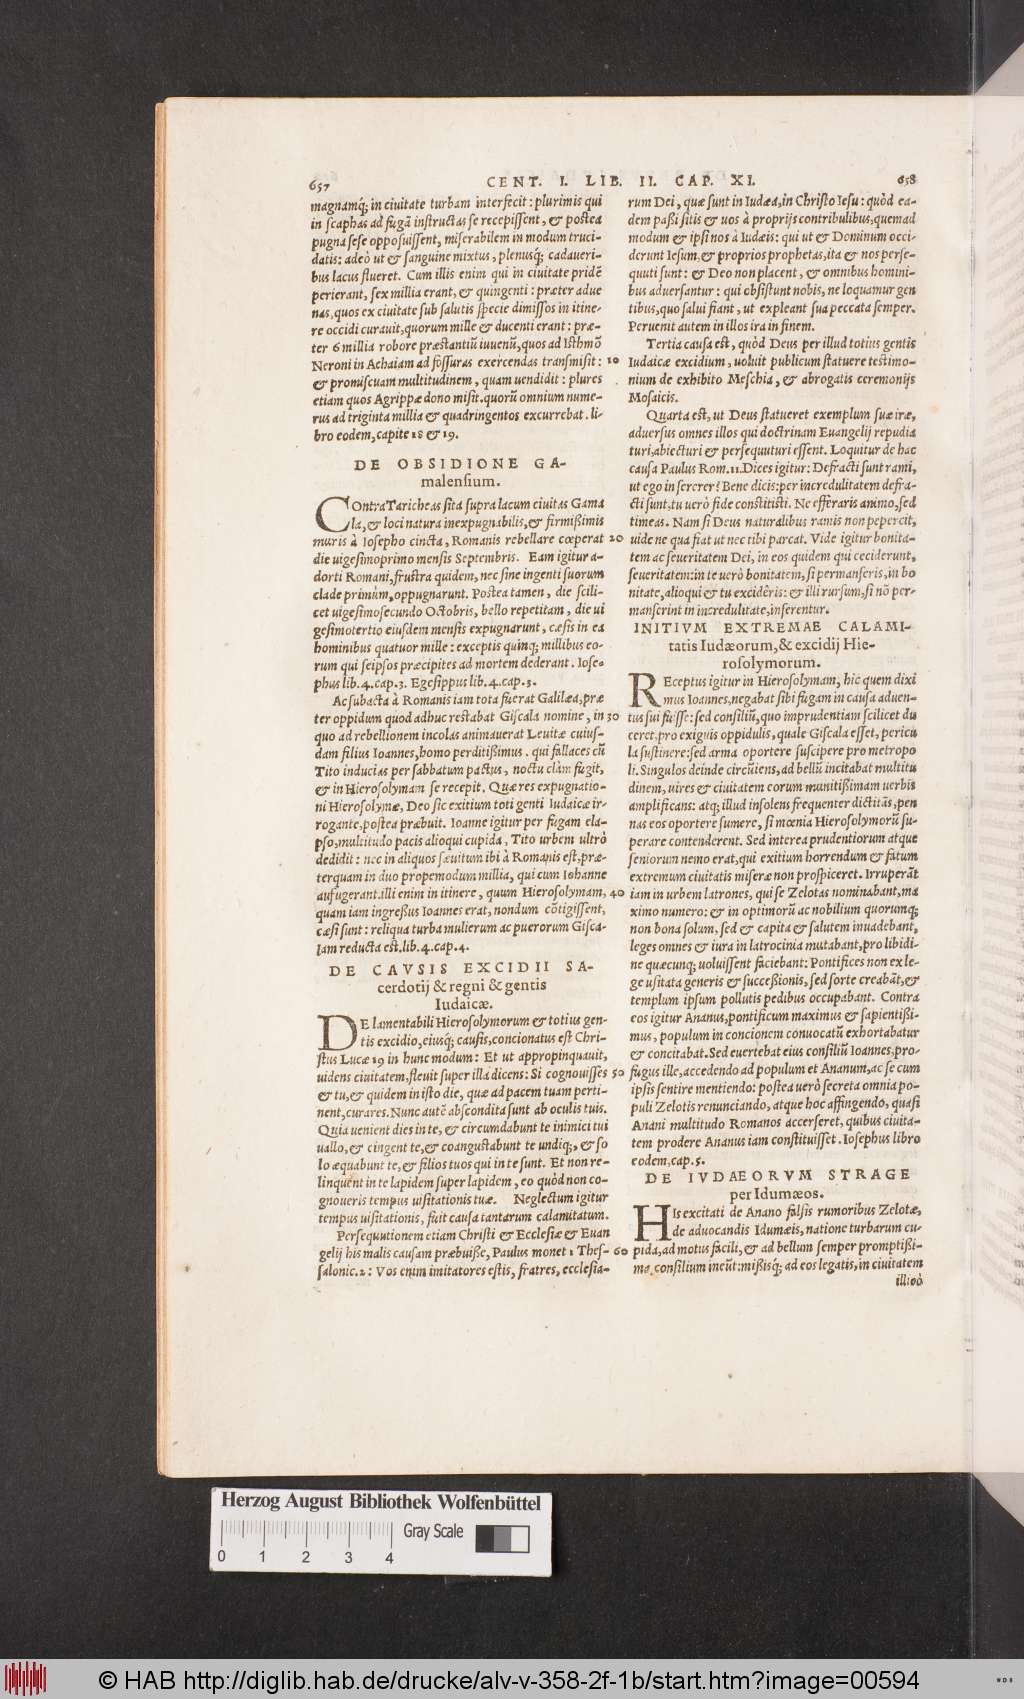 657 CENT. I. LIB. II. CAP. XI. 658
magnamq́; in ciuitate turbam interfecit: plurimis qui
in scaphas ad fugã instructas se recepissent, & postea
pugna sese opposuissent, miserabilem in modum truci-
datis: adeò ut & sanguine mixtus, plenusq́; cadaueri-
bus lacus flueret. Cum illis enim qui in ciuitate pridē
perierant, sex millia erant, & quingenti: præter adue
nas, quos ex ciuitate sub salutis specie dimissos in itine-
re occidi curauit, quorum mille & ducenti erant: præ-
ter 6 millia robore præstantiũ iuuenũ, quos ad Isthmõ
Neroni in Achaiam ad fossuras exercendas transmisit: 10
& promiscuam multitudinem, quam uendidit: plures
etiam quos Agrippæ dono misit. quorũ omnium nume-
rus ad triginta millia & quadringentos excurrebat. li-
bro eodem, capite 18 & 19.
DE OBSIDIONE GA-
malensium.
COntra Taricheas sita supra lacum ciuitas Gama
la, & loci natura inexpugnabilis, & firmißimis
muris à Iosepho cincta, Romanis rebellare cœperat 20
die uigesimoprimo mensis Septembris. Eam igitur a-
dorti Romani, frustra quidem, nec sine ingenti suorum
clade primùm, oppugnarunt. Postea tamen, die scili-
cet uigesimosecundo Octobris, bello repetitam, die ui
gesimotertio eiusdem mensis expugnarunt, cæsis in ea
hominibus quatuor mille: exceptis quinq; millibus eo-
rum qui seipsos præcipites ad mortem dederant. Iose-
phus lib. 4. cap. 3. Egesippus lib. 4. cap. 3.
Ac subacta à Romanis iam tota fuerat Galilæa, præ
ter oppidum quod adhuc restabat Giscala nomine, in 30
quo ad rebellionem incolas animauerat Leuitæ cuius-
dam filius Ioannes, homo perditißimus. qui fallaces cũ
Tito inducias per sabbatum pactus, noctu clàm fugit,
& in Hierosolymam se recepit. Quæ res expugnatio-
ni Hierosolymæ, Deo sic exitium toti genti Iudaicæ ir-
rogante, postea præbuit. Ioanne igitur per fugam ela-
pso, multitudo pacis alioqui cupida, Tito urbem ultrò
dedidit: nec in aliquos sæuitum ibi à Romanis est, præ-
terquam in duo propemodum millia, qui cum Iohanne
aufugerant. illi enim in itinere, quum Hierosolymam, 40
quam iam ingreßus Ioannes erat, nondum cõtigissent,
cæsi sunt: reliqua turba mulierum ac puerorum Gisca-
lam reducta est, lib. 4. cap. 4.
DE CAVSIS EXCIDII SA-
cerdotij & regni & gentis
Iudaicæ.
DE lamentabili Hierosolymorum & totius gen-
tis excidio, eiusq́; causis, concionatus est Chri-
stus Lucæ 19 in hunc modum: Et ut appropinquauit,
uidens ciuitatem, fleuit super illã dicens: Si cognouisses 50
& tu, & quidem in isto die, quæ ad pacem tuam perti-
nent, curares. Nunc autē abscondita sunt ab oculis tuis.
Quia uenient dies in te, & circumdabunt te inimici tui
uallo, & cingent te, & coangustabunt te undiq;, & so
lo æquabunt te, & filios tuos qui in te sunt. Et non re-
linquent in te lapidem super lapidem, eo quòd non co-
gnoueris tempus uisitationis tuæ. Neglectum igitur
tempus uisitationis, fuit causa tantarum calamitatum.
Persequutionem etiam Christi & Ecclesiæ & Euan
gelij his malis causam præbuiße, Paulus monet 1 Thes- 60
salonic. 2: Vos enim imitatores estis, fratres, ecclesia-
rum Dei, quæ sunt in Iudæa, in Christo Iesu: quòd ea-
dem paßi sitis & uos à proprijs contribulibus, quemad
modum & ipsi nos à Iudæis: qui ut & Dominum occi-
derunt Iesum, & proprios prophetas, ita & nos perse-
quuti sunt: & Deo non placent, & omnibus homini-
bus aduersantur: qui obsistunt nobis, ne loquamur gen
tibus, quo salui fiant, ut expleant sua peccata semper.
Peruenit autem in illos ira in finem.
Tertia causa est, quòd Deus per illud totius gentis
Iudaicæ excidium, uoluit publicum statuere testimo-
nium de exhibito Meschia, & abrogatis ceremonijs
Mosaicis.
Quarta est, ut Deus statueret exemplum suæ iræ,
aduersus omnes illos qui doctrinam Euangelij repudia
turi, abiecturi & persequuturi essent. Loquitur de hac
causa Paulus Rom. 11. Dices igitur: Defracti sunt rami,
ut ego insererer? Bene dicis: per incredulitatem defra-
cti sunt, tu uerò fide constitisti. Ne efferaris animo, sed
timeas. Nam si Deus naturalibus ramis non pepercit,
uide ne qua fiat ut nec tibi parcat. Vide igitur bonita-
tem ac seueritatem Dei, in eos quidem qui ceciderunt,
seueritatem: in te uerò bonitatem, si permanseris, in bo
nitate, alioqui & tu excidéris: & illi rursum, si nõ per-
manserint in incredulitate, inserentur.
INITIVM EXTREMAE CALAMI-
tatis Iudæorum, & excidij Hie-
rosolymorum.
REceptus igitur in Hierosolymam, hic quem dixi
mus Ioannes, negabat sibi fugam in causa aduen-
tus sui fuisse: sed consiliũ, quo imprudentiam scilicet du
ceret, pro exiguis oppidulis, quale Giscala esset, pericu
la sustinere: sed arma oportere suscipere pro metropo
li. Singulos deinde circũiens, ad bellũ incitabat multitu
dinem, uires & ciuitatem eorum munitißimam uerbis
amplificans: atq; illud insolens frequenter dictitãs, pen
nas eos oportere sumere, si mœnia Hierosolymorũ su-
perare contenderent. Sed interea prudentiorum atque
seniorum nemo erat, qui exitium horrendum & fatum
extremum ciuitatis miseræ non prospiceret. Irruperãt
iam in urbem latrones, qui se Zelotas nominabant, ma
ximo numero: & in optimorũ ac nobilium quorumq;
non bona solum, sed & capita & salutem inuadebant,
leges omnes & iura in latrocinia mutabant, pro libidi-
ne quæcunq; uoluissent faciebant: Pontifices non ex le-
ge usitata generis & succeßionis, sed sorte creabãt, &
templum ipsum pollutis pedibus occupabant. Contra
eos igitur Ananus, pontificum maximus & sapientißi-
mus, populum in concionem conuocatũ exhortabatur
& concitabat. Sed euertebat eius consiliũ Ioannes, pro-
fugus ille, accedendo ad populum et Ananum, ac se cum
ipsis sentire mentiendo: postea uerò secreta omnia po-
puli Zelotis renunciando, atque hoc affingendo, quasi
Anani multitudo Romanos accerseret, quibus ciuita-
tem prodere Ananus iam constituisset. Iosephus libro
eodem, cap. 5.
DE IVDAEORVM STRAGE
per Idumæos.
HIs excitati de Anano falsis rumoribus Zelotæ,
de aduocandis Idumæis, natione turbarum cu-
pida, ad motus facili, & ad bellum semper promptißi-
ma, consilium ineũt: mißisq́; ad eos legatis, in ciuitatem
illico
Herzog August Bibliothek Wolfenbüttel
Gray Scale
0 1 2 3 4
© HAB http://diglib.hab.de/drucke/alv-v-358-2f-1b/start.htm?image=00594